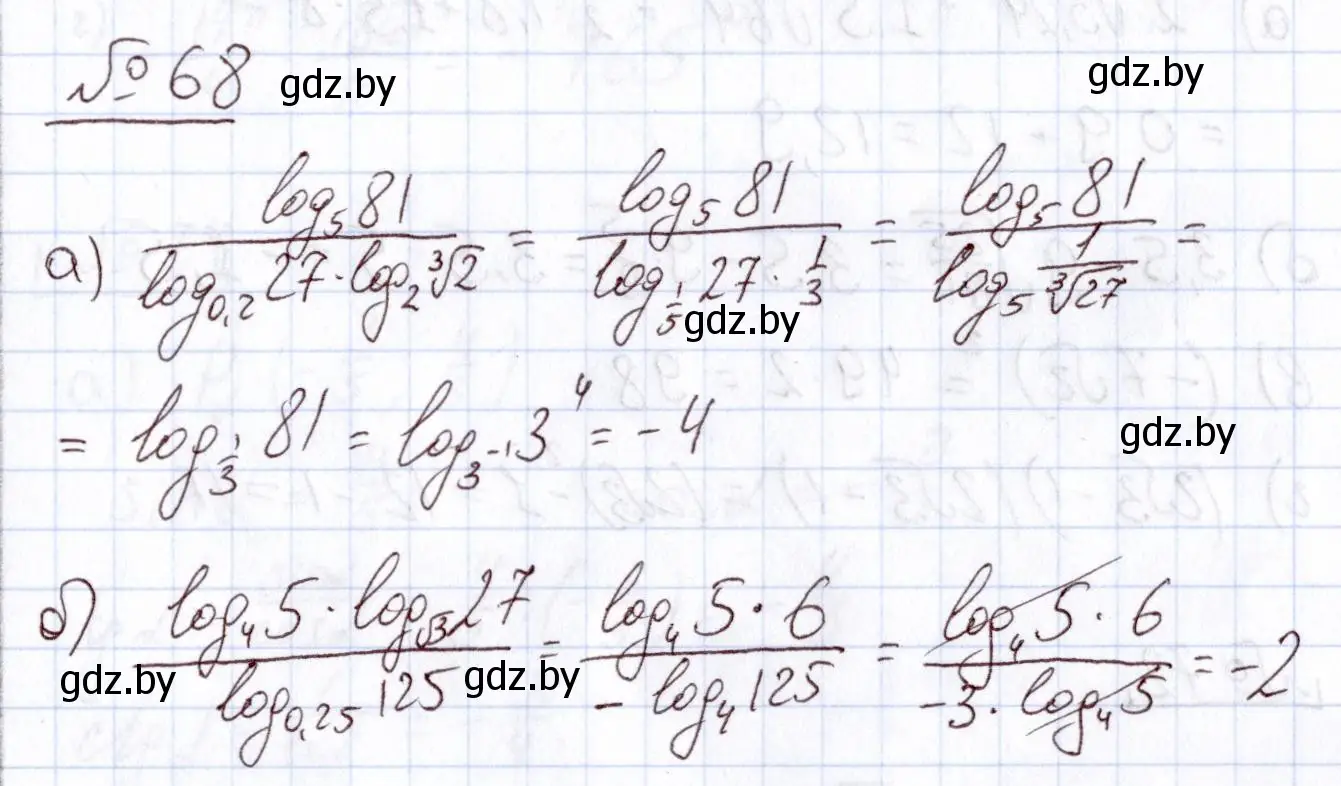 №68 gdz.by gdz.by
а) \frac{log_5 81}{log_{0,2} 27 · log_2 \sqrt[3]{2}} = \frac{log_5 81}{log_{\frac{1}{5}} 27 · \frac{1}{3}} = \frac{log_5 81}{log_5 \frac{1}{\sqrt[3]{27}}} =
gdz.by
= log_{\frac{1}{3}} 81 = log_{3^{-1}} 3^4 = -4 gdz.by
б) \frac{log_4 5 · log_{\sqrt{3}} 27}{log_{0,25} 125} = \frac{log_4 5 · 6}{- log_4 125} = \frac{log_4 5 · 6}{-3 · log_4 5} = -2
gdz.by gdz.by